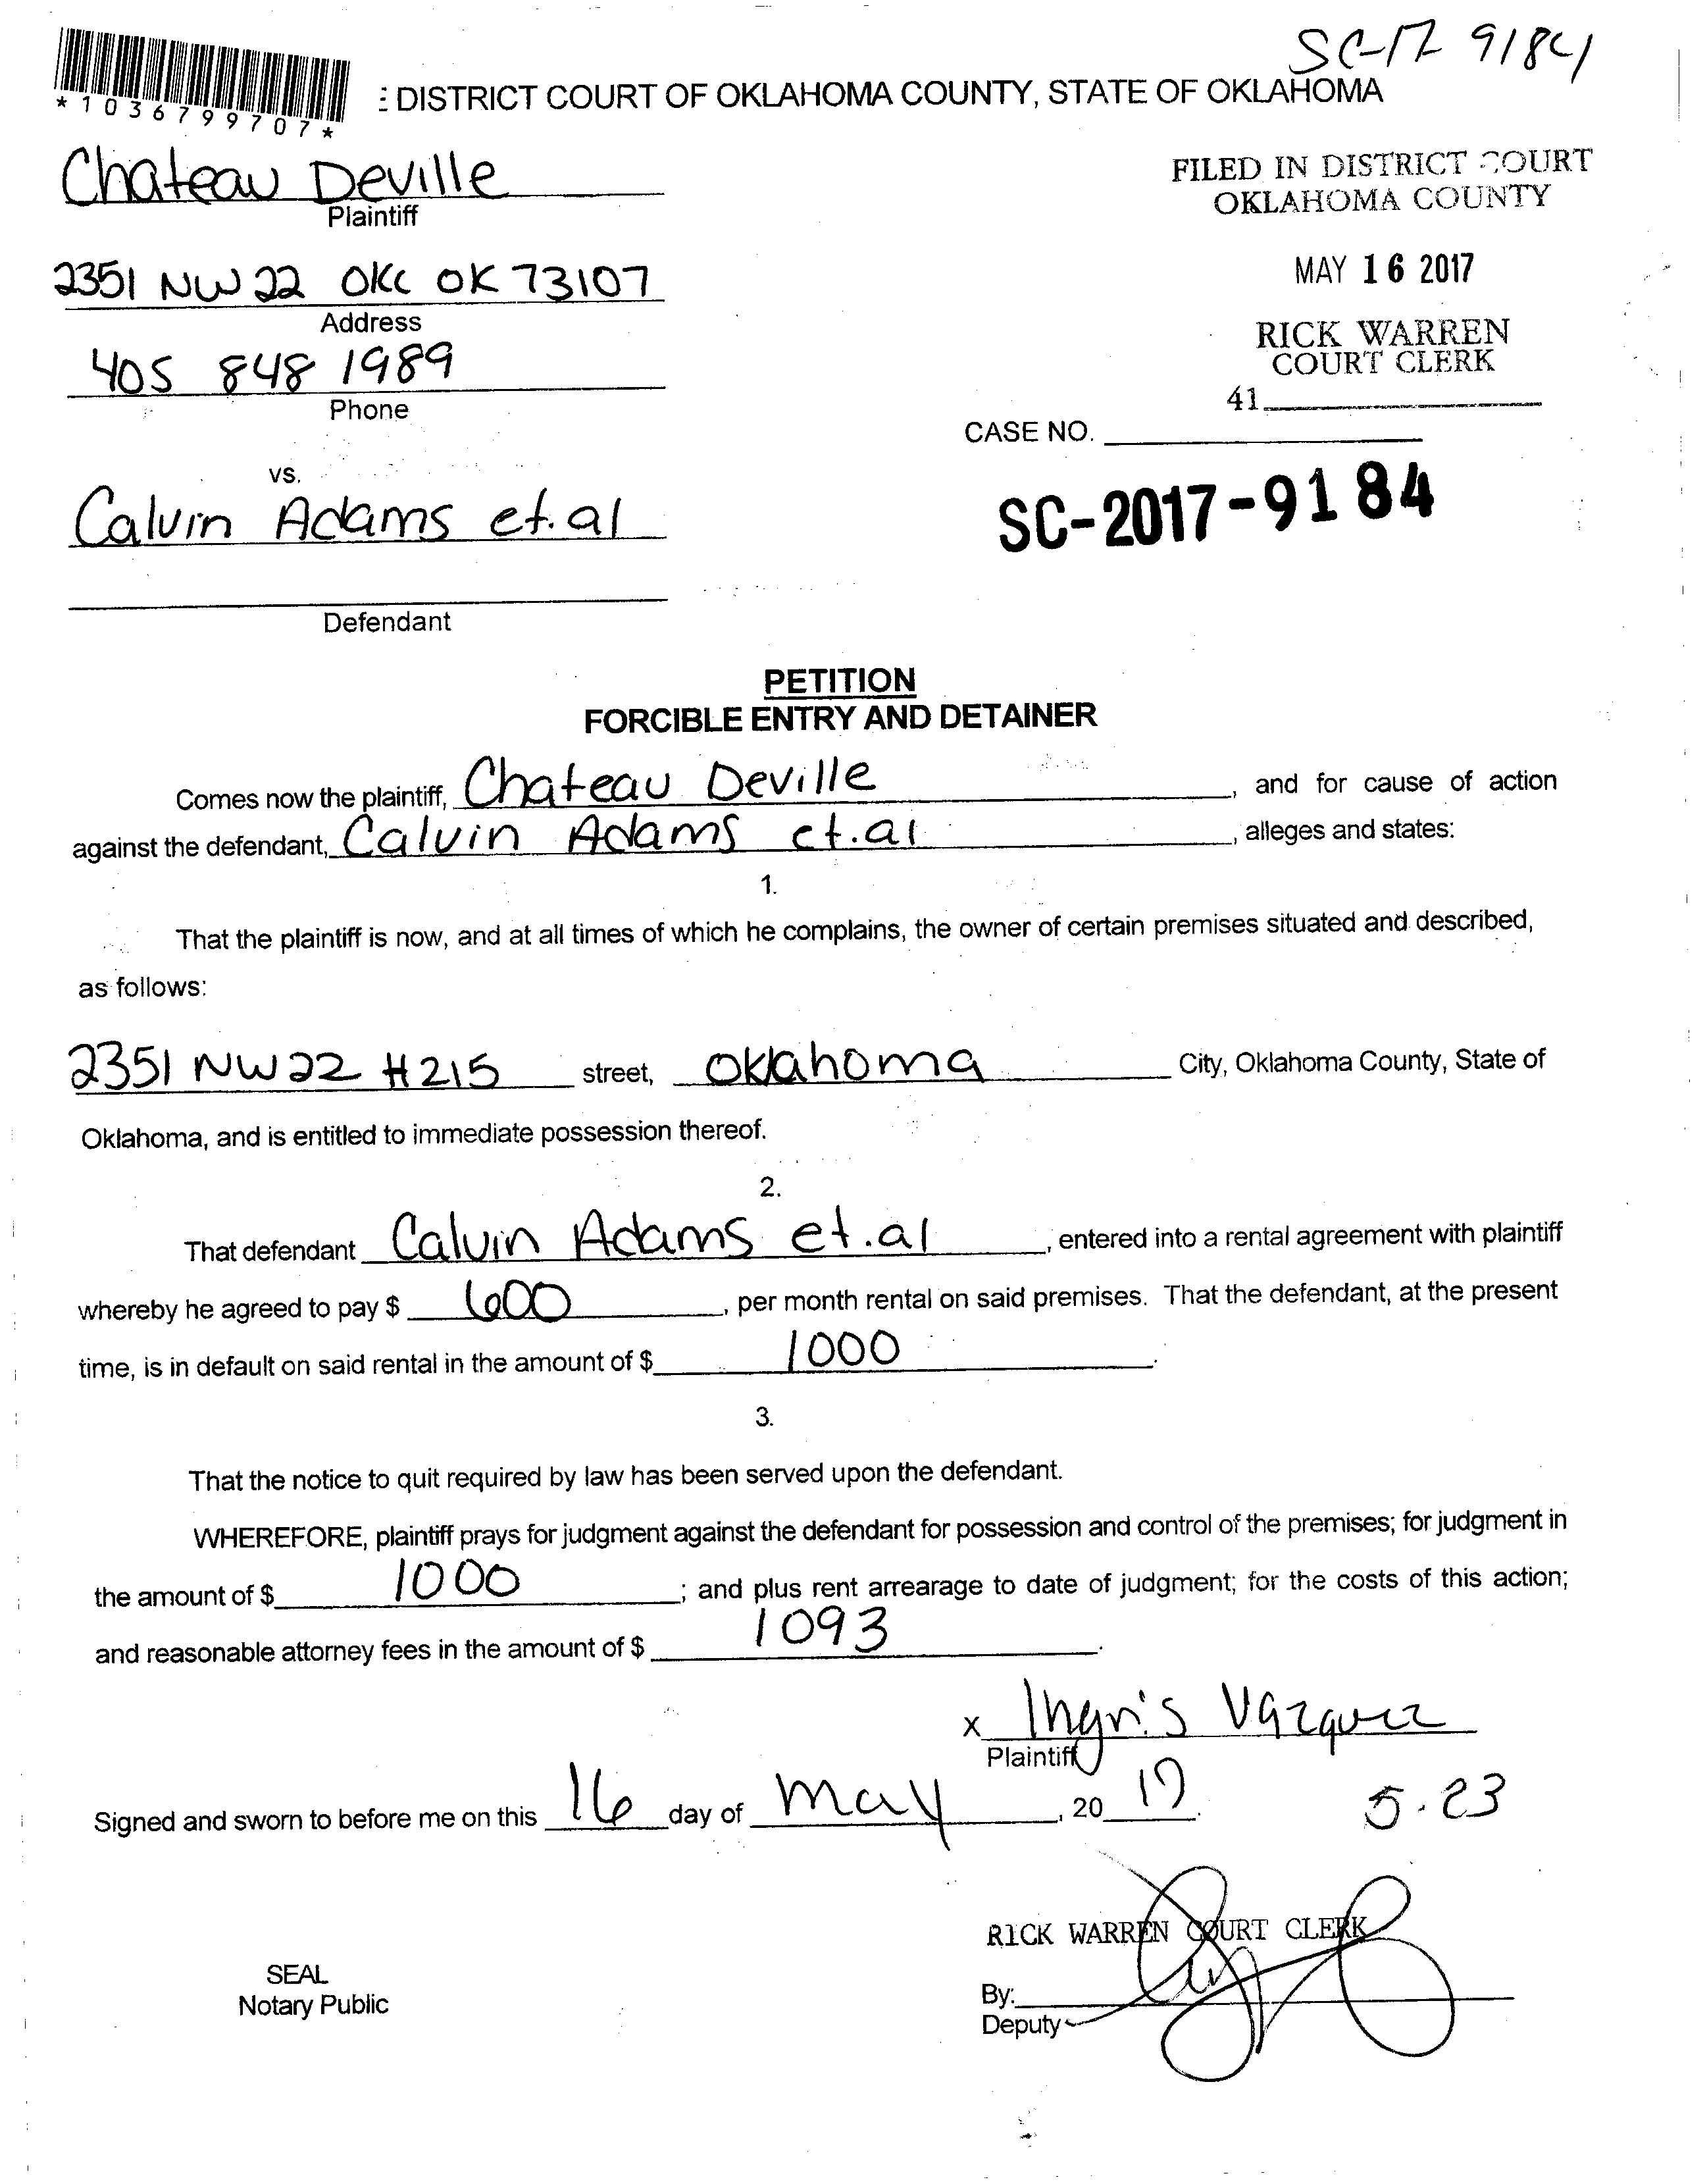 SC-17 9184
*1036799707*
: DISTRICT COURT OF OKLAHOMA COUNTY, STATE OF OKLAHOMA
Chateau Deville
Plaintiff
FILED IN DISTRICT COURT
OKLAHOMA COUNTY
2351 NW 22 OKC OK 73107
Address
MAY 16 2017
405 848 1989
Phone
RICK WARREN
COURT CLERK
41
CASE NO.
vs.
SC-2017-9184
Calvin Adams et.al
Defendant
PETITION
FORCIBLE ENTRY AND DETAINER
Comes now the plaintiff, Chateau Deville, and for cause of action
against the defendant, Calvin Adams et.al, alleges and states:
1.
That the plaintiff is now, and at all times of which he complains, the owner of certain premises situated and described,
as follows:
2351 NW 22 #215 street, Oklahoma City, Oklahoma County, State of
Oklahoma, and is entitled to immediate possession thereof.
2.
That defendant Calvin Adams et.al, entered into a rental agreement with plaintiff
whereby he agreed to pay $ 600, per month rental on said premises. That the defendant, at the present
time, is in default on said rental in the amount of $ 1000.
3.
That the notice to quit required by law has been served upon the defendant.
WHEREFORE, plaintiff prays for judgment against the defendant for possession and control of the premises; for judgment in
the amount of $ 1000; and plus rent arrearage to date of judgment; for the costs of this action;
and reasonable attorney fees in the amount of $ 1093.
x Ingris Vazquez
Plaintiff
Signed and sworn to before me on this 16 day of May, 20 17.
5.23
RICK WARREN COURT CLERK
SEAL
Notary Public
By:
Deputy